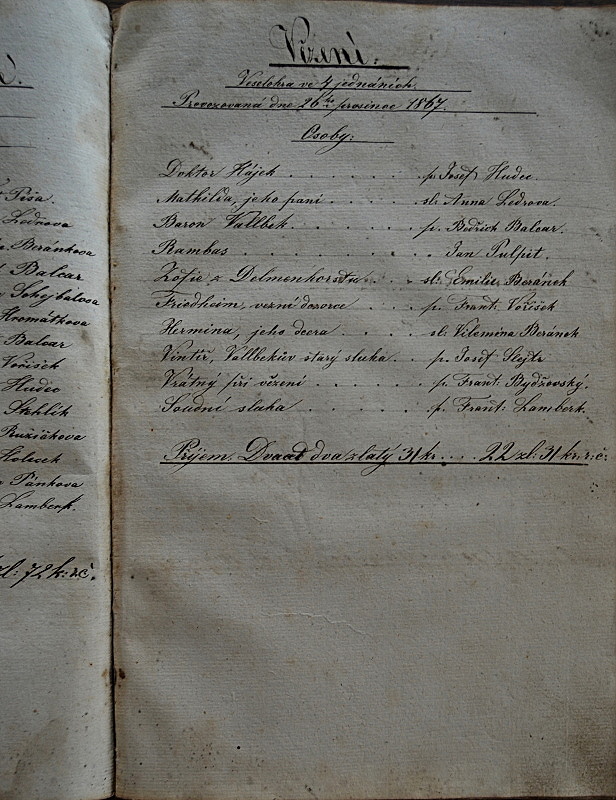 í.
Píša.
Ledrova
Beránkova
Balcar
Schejbalova
Hromátkova
Balcar
Voříšek
Hudec
Skhlík
Ružičkova
Holecek
Pánkova
Lamberk.
zl: 72 k: r.č.
Vězení.
Veselohra ve 4 jednáních.
Provozovaná dne 26ho prosince 1867.
Osoby:
Doktor Hájek . . . . . . p. Josef Hudec.
Mathilda, jeho paní . . . . . sl: Anna Ledrova.
Baron Vallbek . . . . . . p. Bedřich Balcar.
Rambas . . . . . . . . Jan Pulpit.
Žofie z Delmenhorstu . . . . sl: Emilie Beránek
Friedheim, vězní dozorce . . . . p. Frant. Voříšek
Hermina, jeho dcera . . . . . sl: Vilemina Beránek
Vintíř, Vallbekův starý sluha . . p. Josef Šlejtr
Vrátný při vězení . . . . . . p. Frant: Bydžovský.
Soudní sluha . . . . . . p. Frant: Lamberk.
Příjem. Dvaad dva zlatý 31 kr. . . . 22 zl: 31 kr: r: č: